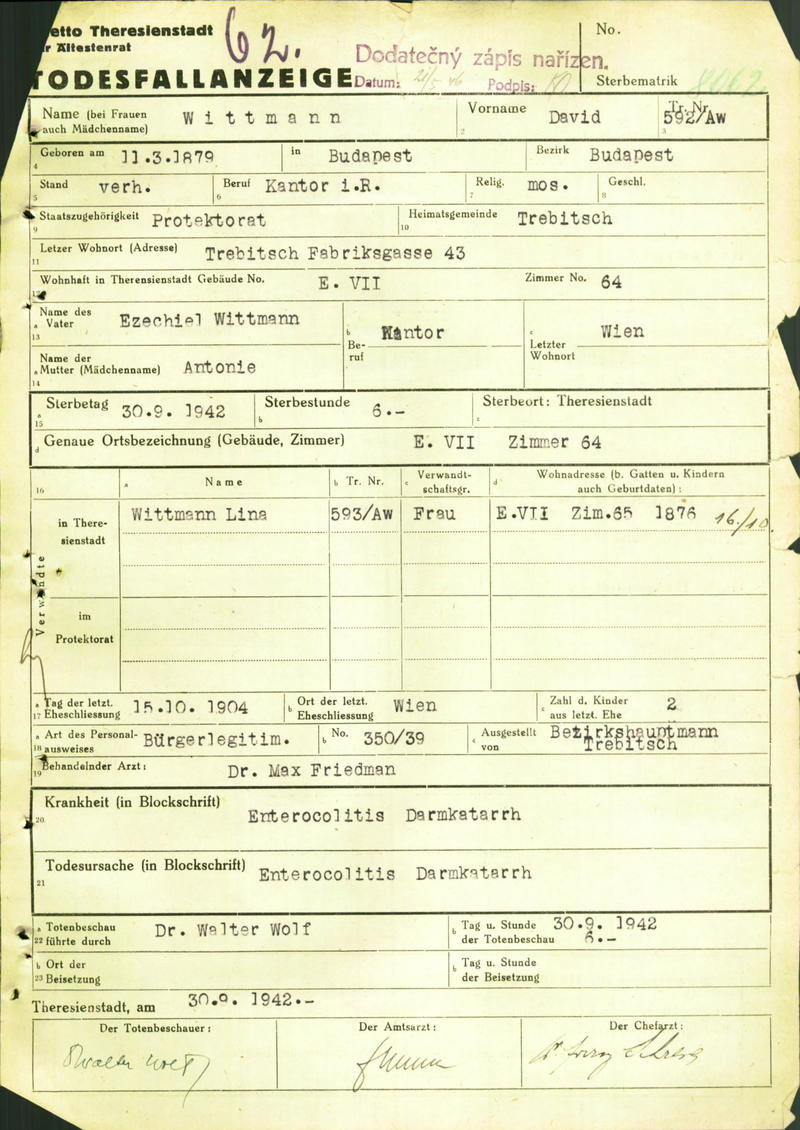 etto Theresienstadt
r Ältestenrat
62.
Dodatečný zápis nařízen.
Datum: 21/5 46 Podpis:
No.
TODESFALLANZEIGE
Sterbematrik
Name (bei Frauen auch Mädchenname) Wittmann
Vorname David
Tr. Nr. 592/Aw
Geboren am 11.3.1879 in Budapest Bezirk Budapest
Stand verh. Beruf Kantor i.R. Relig. mos. Geschl.
Staatszugehörigkeit Protektorat Heimatsgemeinde Trebitsch
Letzer Wohnort (Adresse) Trebitsch Fabriksgasse 43
Wohnhaft in Therensienstadt Gebäude No. E. VII Zimmer No. 64
Name des Vater Ezechiel Wittmann Beruf Kantor Letzter Wohnort Wien
Name der Mutter (Mädchenname) Antonie
Sterbetag 30.9. 1942 Sterbestunde 6.- Sterbeort: Theresienstadt
Genaue Ortsbezeichnung (Gebäude, Zimmer) E. VII Zimmer 64
16 a Name b Tr. Nr. c Verwandtschaftsgr. d Wohnadresse (b. Gatten u. Kindern auch Geburtdaten) :
Verwandte
in Theresienstadt
Wittmann Lina 593/Aw Frau E.VII Zim.65 1876 16./10.
im Protektorat
Tag der letzt. Eheschliessung 15.10. 1904 Ort der letzt. Eheschliessung Wien Zahl d. Kinder aus letzt. Ehe 2
Art des Personalausweises Bürgerlegitim. No. 350/39 Ausgestellt von Bezirkshauptmann Trebitsch
Behandelnder Arzt: Dr. Max Friedman
Krankheit (in Blockschrift) Enterocolitis Darmkatarrh
Todesursache (in Blockschrift) Enterocolitis Darmkatarrh
Totenbeschau führte durch Dr. Walter Wolf Tag u. Stunde der Totenbeschau 30.9. 1942 6.-
Ort der Beisetzung Tag u. Stunde der Beisetzung
Theresienstadt, am 30.9. 1942.-
Der Totenbeschauer: Der Amtsarzt: Der Chefarzt:
Dr Walter Wolf